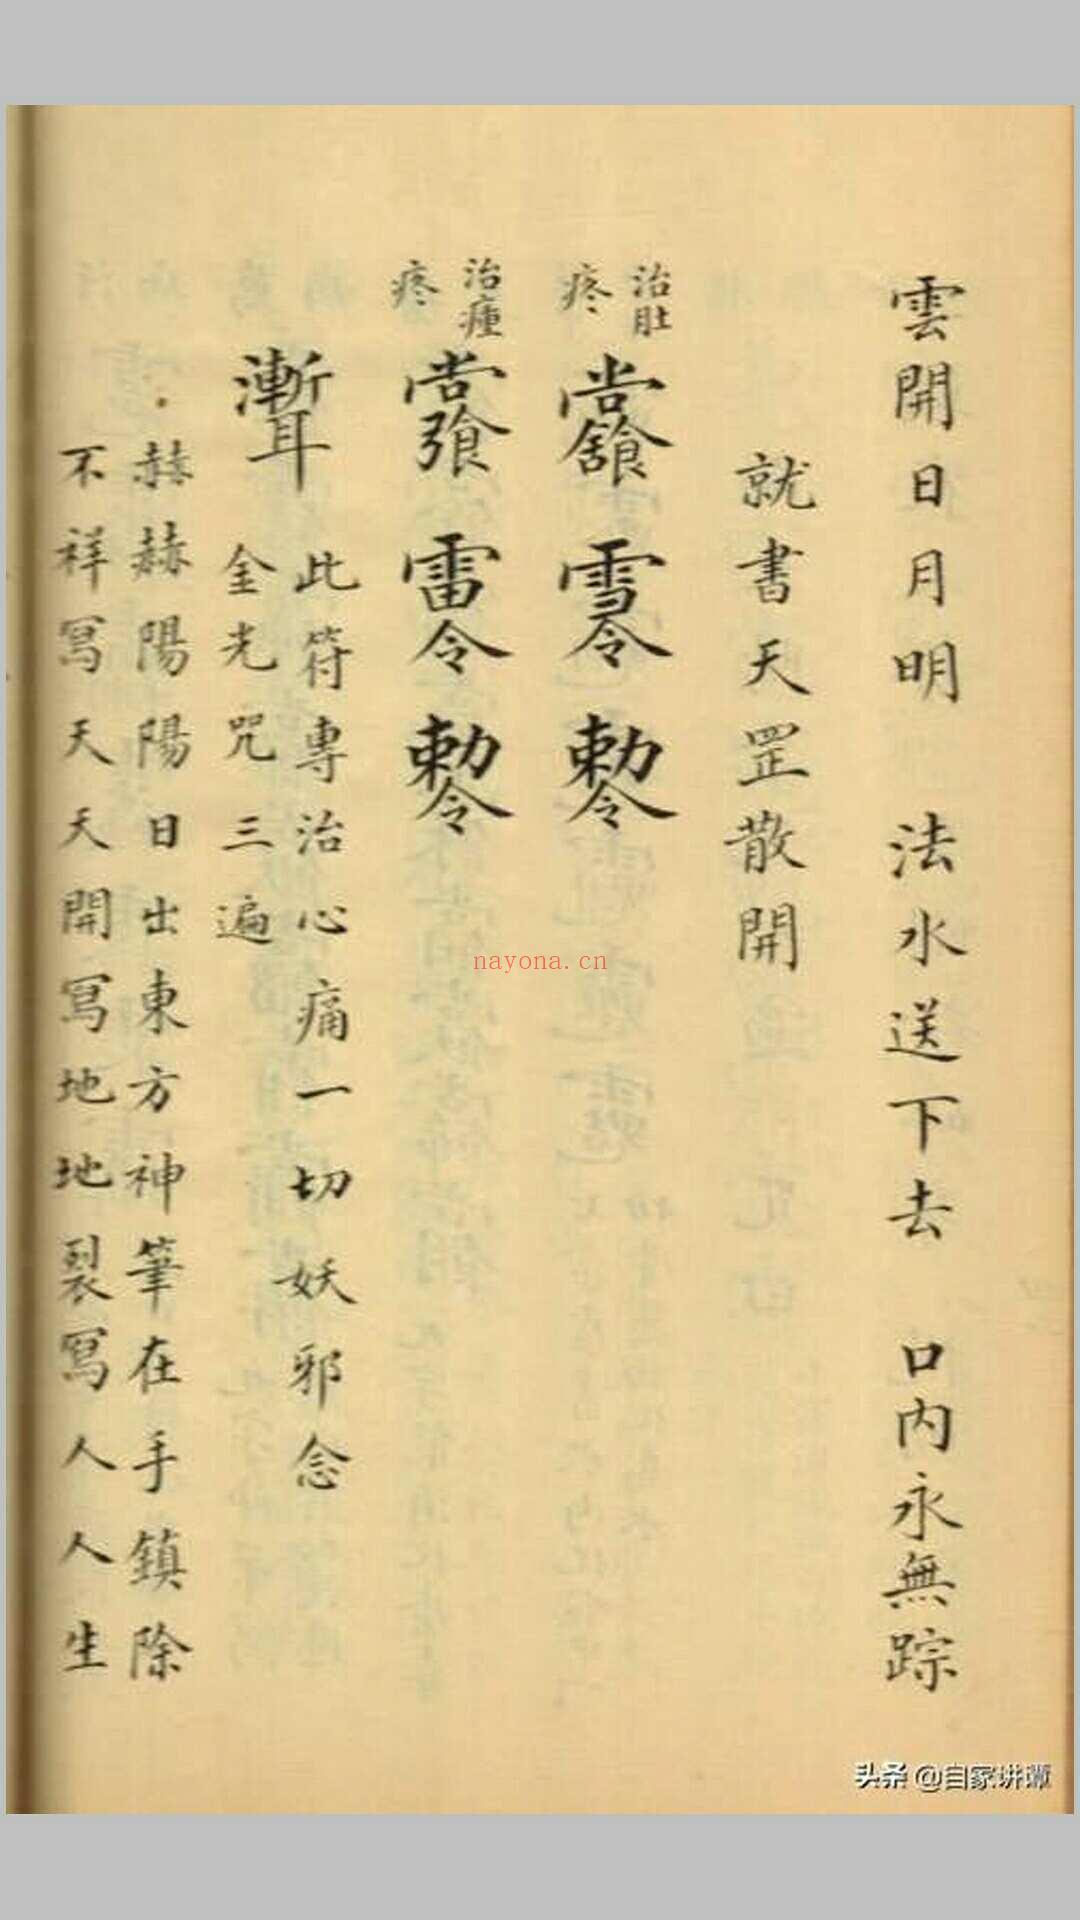 雲開日月明　法水送下去　口内永無踪
就書天罡散開
治肚疼
治瘇疼
此符專治心痛一切妖邪念
金光咒三遍
赫赫陽陽日出東方神筆在手鎮除
不祥寫天天開寫地地裂寫人人生
nayona.cn
头条 @自家讲谭